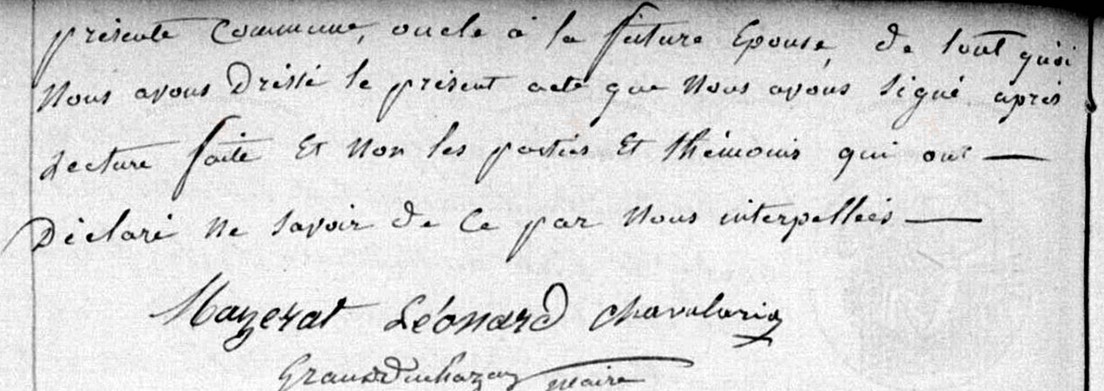 présente Commune, oncle à la future Epouse, de tout quoi
Nous avons Dressé le présent acte que Nous avons signé après
Lecture faite Et Non les parties Et thémoins qui ont —
Déclaré Ne savoir de Ce par Nous interpellées —
Mazerat Léonard Chavalaria
maire